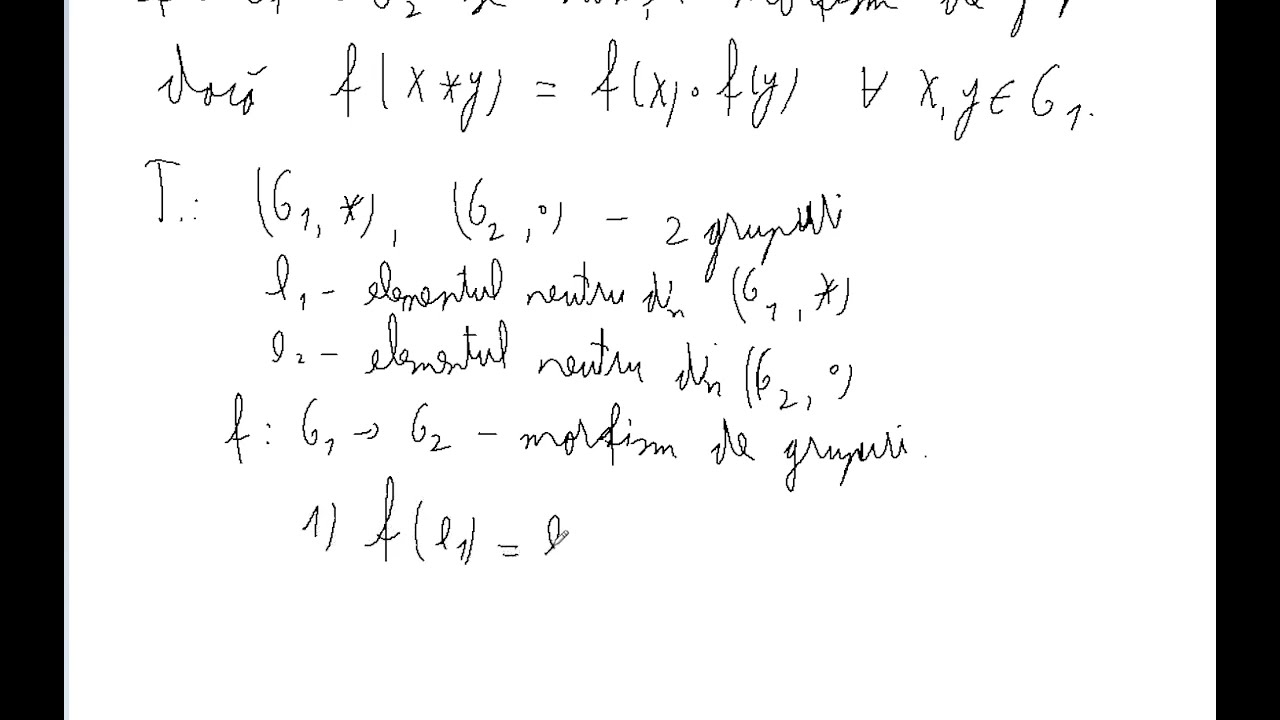 dacă f(x*y) = f(x)∘f(y) ∀ x,y∈G₁.
T.: (G₁,*), (G₂,∘) - 2 grupuri
e₁ - elementul neutru din (G₁,*)
e₂ - elementul neutru din (G₂,∘)
f: G₁ → G₂ - morfism de grupuri.
1) f(e₁) = e